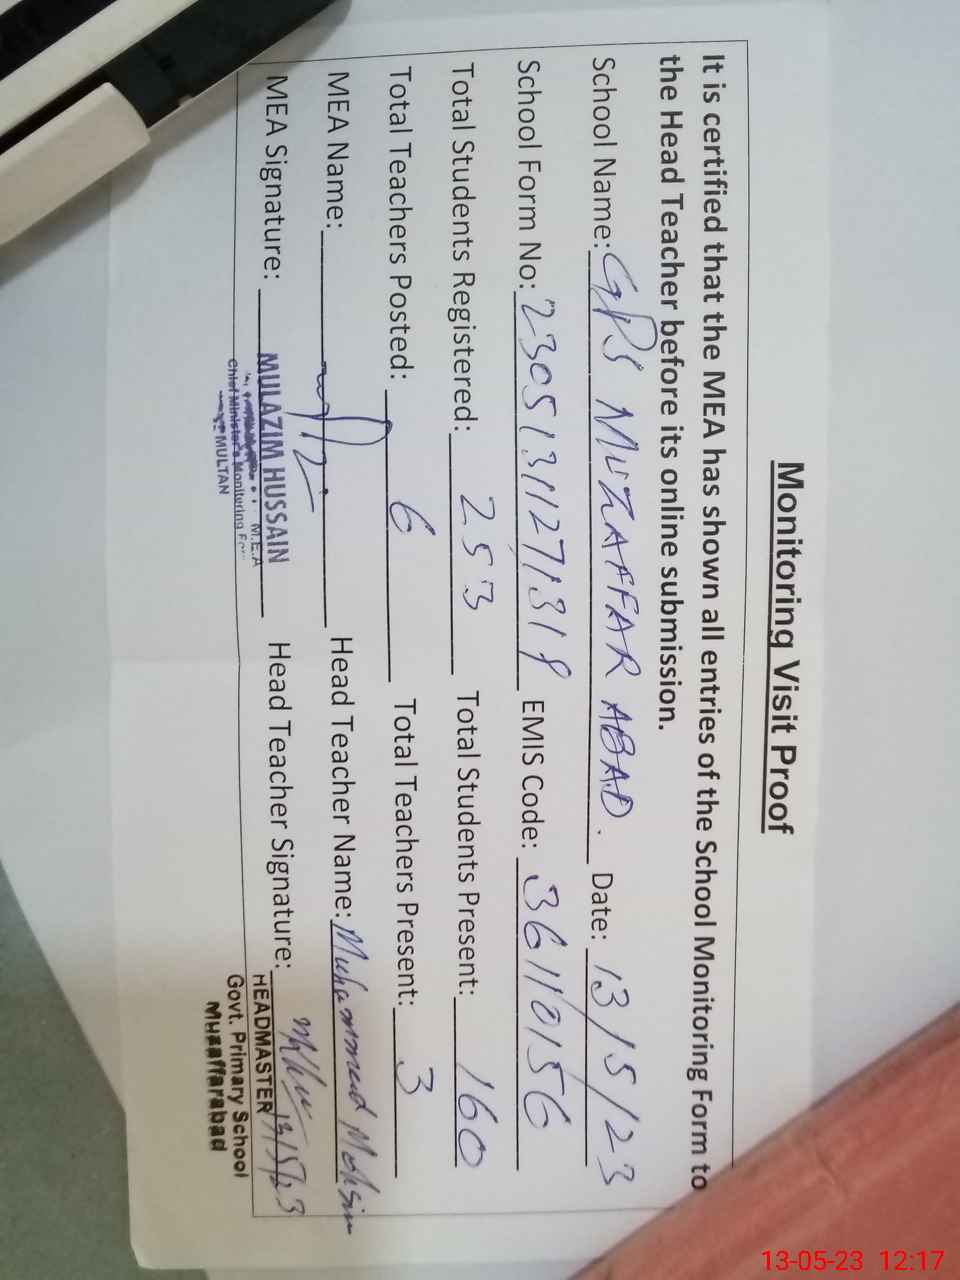 Monitoring Visit Proof
It is certified that the MEA has shown all entries of the School Monitoring Form to
the Head Teacher before its online submission.
School Name: GPS MUZAFFAR ABAD. Date: 13/5/23
School Form No: EMIS Code: 36110156
Total Students Registered: 253 Total Students Present: 160
Total Teachers Posted: 6 Total Teachers Present: 3
MEA Name: Head Teacher Name: Muhammad Mohsin
MEA Signature: Head Teacher Signature: 13/5/23
MULAZIM HUSSAIN
M.E.A
Chief Minister's Monitoring
MULTAN
HEADMASTER
Govt. Primary School
Muzaffarabad
13-05-23 12:17